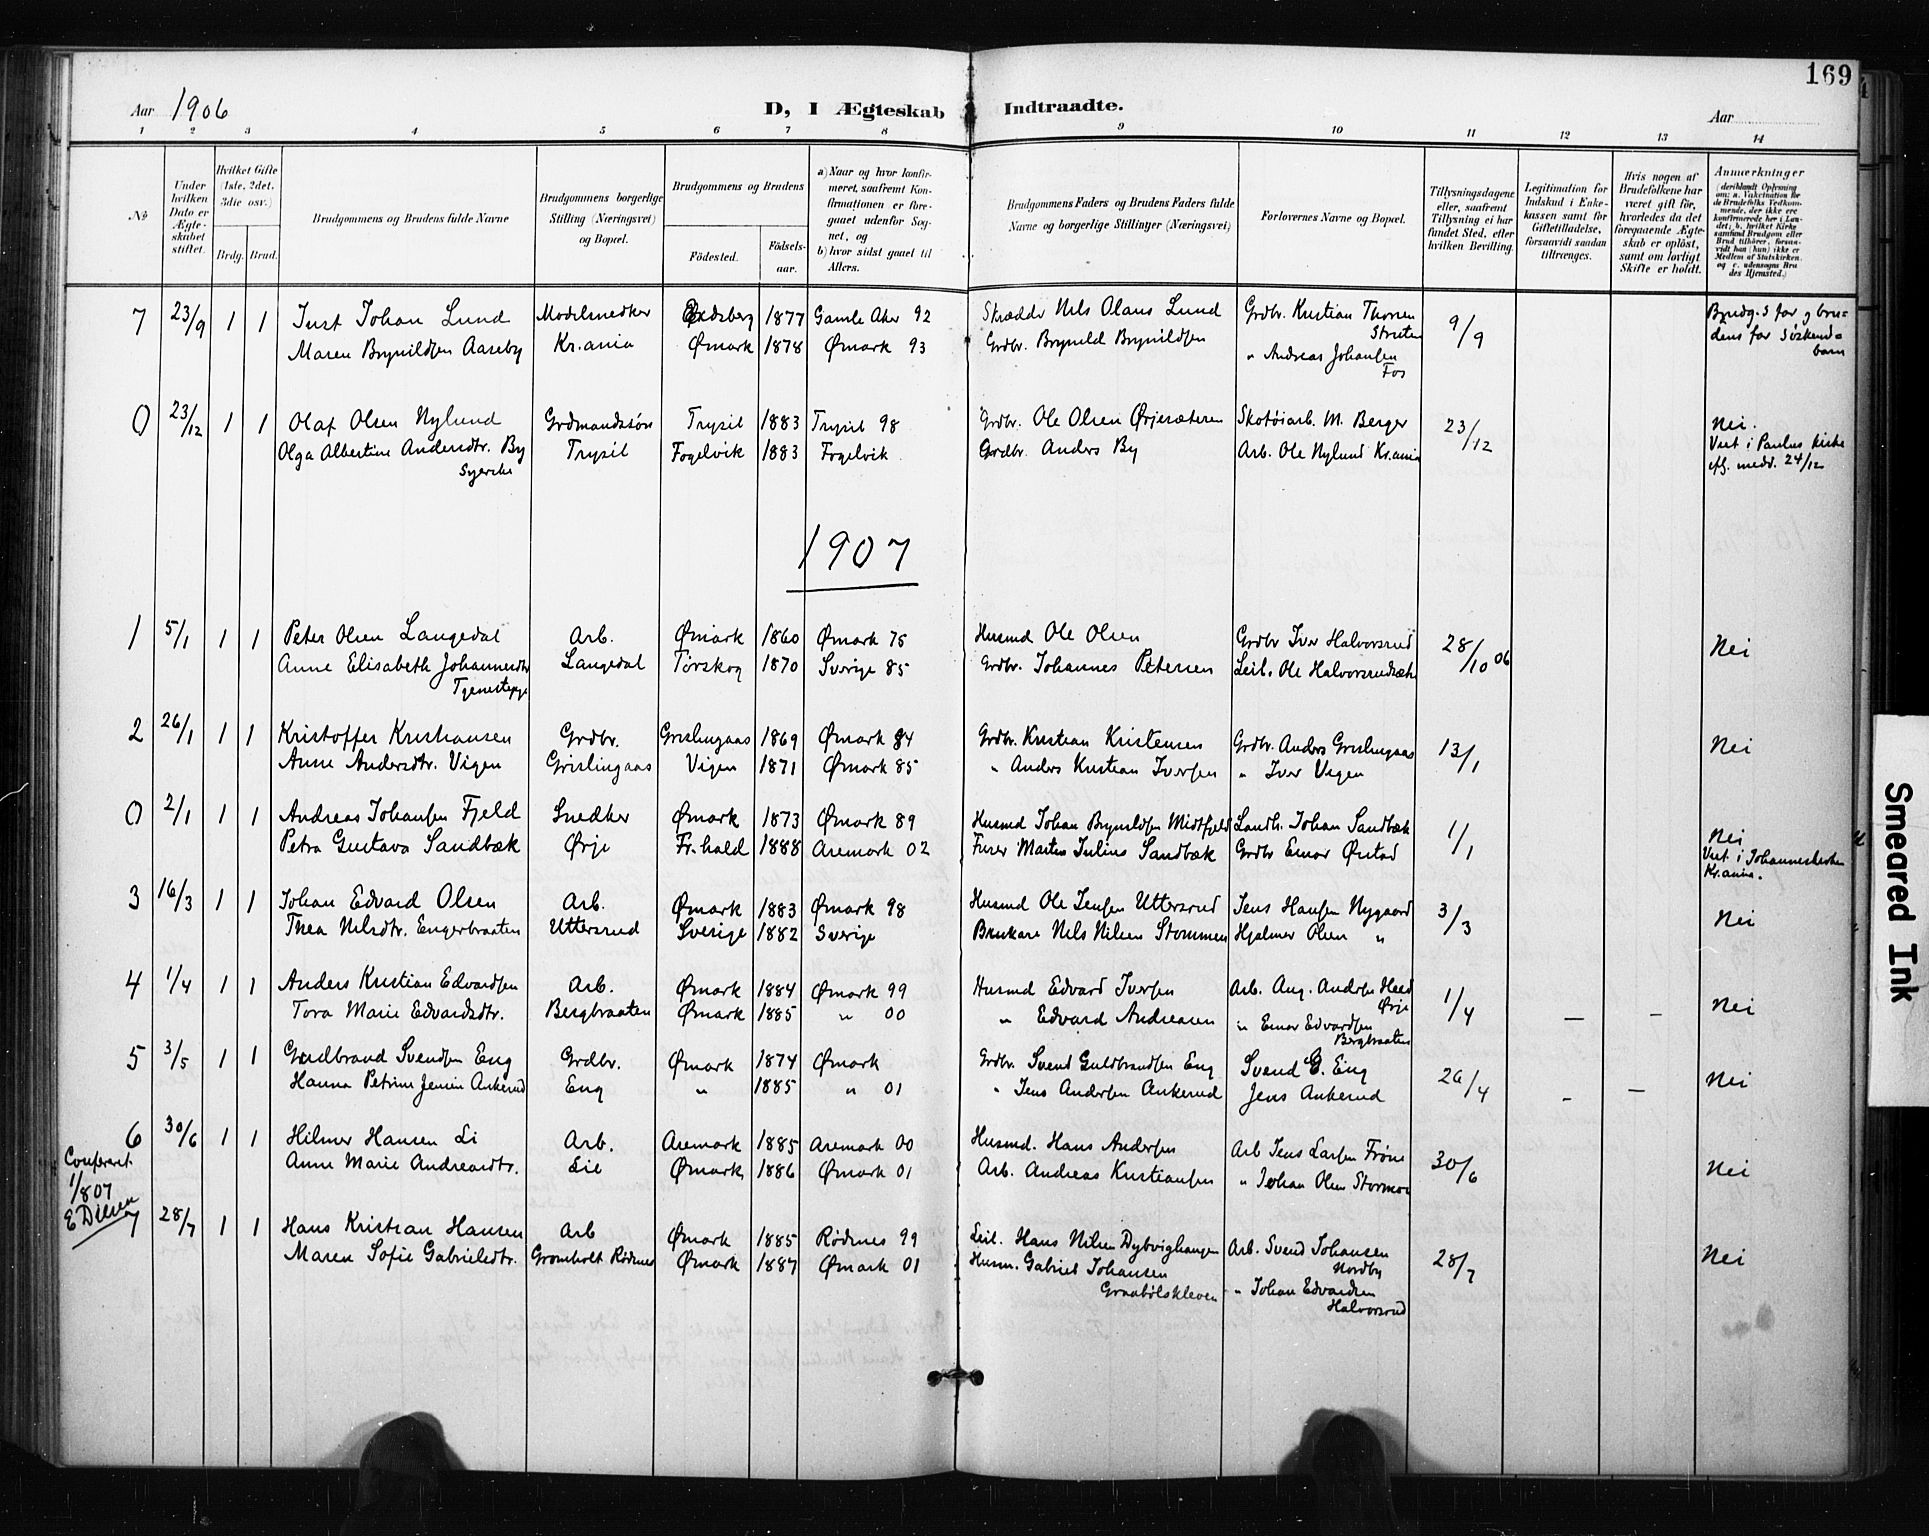 169
Aar 1906
D, I Ægteskab Indtraadte.
Aar
1 2 3 4 5 6 7 8 9 10 11 12 13 14
No
Under hvilken Dato er Ægteskabet stiftet.
Hvilket Gifte (1ste, 2det, 3die osv.)
Brdg. Brud.
Brudgommens og Brudens fulde Navne
Brudgommens borgerlige Stilling (Næringsvei) og Bopæl.
Brudgommens og Brudens
Fødested.
Fødselsaar.
a) Naar og hvor konfirmeret, saafremt Konfirmationen er foregaaet udenfor Sognet, og
b) hvor sidst gaaet til Alters.
Brudgommens Faders og Brudens Faders fulde Navne og borgerlige Stillinger (Næringsvei)
Forlovernes Navne og Bopæl.
Tillysningsdagene eller, saafremt Tillysning ei har fundet Sted, efter hvilken Bevilling.
Legitimation for Indskud i Enkekassen samt for Giftetilladelse, forsaavidt saadan tiltrænges.
Hvis nogen af Brudefolkene har været gift før, hvorledes da det foregaaende Ægteskab er opløst, samt om lovligt Skifte er holdt.
Anmerkninger
(deriblandt Oplysning om: a. Vaccination for de Brudefolks Vedkommende, der ikke ere konfirmerede her i Landet; b. hvilket Kirkesamfund Brudgom eller Brud tilhører, forsaavidt han (hun) ikke er Medlem af Statskirken, og c. udensogns Brudes Hjemsted.)
7 23/9 1 1 Just Johan Lund Modelsnedker Eidsberg 1877 Gamle Aker 92 Skrædder Nils Olaus Lund Grdbr. Kristian Thoresen 9/9 Brudg.s far og bru-
Maren Brynildsen Aaseby Kr.ania Ømark 1878 Ømark 93 Grdbr. Brynild Brynildsen " Andreas Johansen Fos dens far søskende-
barn
0 23/12 1 1 Olaf Olsen Nylund Grdmandssøn Trysil 1883 Trysil 98 Grdbr. Ole Olsen Ørjesæteren Skotøiarb. M. Berger 23/12 Nei.
Olga Albertine Andersdtr. By Trysil Fogelvik 1883 Fogelvik Grdbr. Anders By Arb. Ole Nylund Kr.ania Viet i Paulus kirke
Syerske efl. medd. 24/12
1907
1 5/1 1 1 Peter Olsen Langedal Arb. Ømark 1860 Ømark 75 Husmd Ole Olsen Grdbr Iver Halvorsrud 28/10 06 Nei
Anne Elisabeth Johannesdtr Langedal Tørskog 1870 Sverige 85 Grdbr. Johannes Petersen Leil. Ole Halvorsrudsæter
Tjenestepige
2 26/1 1 1 Kristoffer Kristiansen Grdbr. Grislingaas 1869 Ømark 84 Grdbr. Kristian Kristensen Grdbr. Anders Grislingaas 13/1 Nei
Anne Andersdtr. Vigen Grislingaas Vigen 1871 Ømark 85 " Anders Kristian Iversen " Iver Vigen
0 2/1 1 1 Andreas Johansen Fjeld Snedker Ømark 1873 Ømark 89 Husmd Johan Brynildsen Midtfjeld Landh. Johan Sandbæk 1/1 Nei
Petra Gustava Sandbæk Ørje Fr.hald 1888 Aremark 02 Furer Martin Julius Sandbæk Grdbr Einar Ørstad Viet i Johanneskirken
Kr.ania.
3 16/3 1 1 Johan Edvard Olsen Arb. Ømark 1883 Ømark 98 Husmd Ole Jensen Uttersrud Jens Hansen Nygaard 3/3 Nei
Thea Nilsdtr. Engerbraaten Uttersrud Sverige 1882 Sverige Brukare Nils Nilsen Stommen Hjalmer Olsen "
4 1/4 1 1 Anders Kristian Edvardsen Arb. Ømark 1884 Ømark 99 Husmd Edvard Iversen Arb. Aug. Andersen Heed Ørje 1/4 — — Nei
Tora Marie Edvardsdtr. Bergbraaten Ømark 1885 " 00 " Edvard Andreasen " Einar Edvardsen Bergbraaten
5 3/5 1 1 Gudbrand Svendsen Eng Grdbr. Ømark 1874 Ømark Grdbr. Svend Guldbrandsen Eng Svend G. Eng 26/4 - — Nei
Hanna Petrine Jensin Ankerud Eng " 1885 " 01 " Jens Andersen Ankerud Jens Ankerud
6 30/6 1 1 Hilmer Hansen Li Arb. Aremark 1885 Aremark 00 Husmd. Hans Andersen Arb Jens Larsen Frøne 30/6 Nei
Anne Marie Andreasdtr. Lie Ømark 1886 Ømark 01 Arb. Andreas Kristiansen " Johan Olsen Stormoen
Confereret
1/8 07
7 28/7 1 1 Hans Kristian Hansen Arb Ømark 1885 Rødenes 99 Leil. Hans Nilsen Dybvighaugen Arb. Svend Johansen Nordby 28/7 Nei
Maren Sofie Gabrielsdtr. Gromholt Rødenes Ømark 1887 Ømark 01 Husm. Gabriel Johansen Graabølskleven " Johan Edvardsen Halvorsrud
Smeared Ink